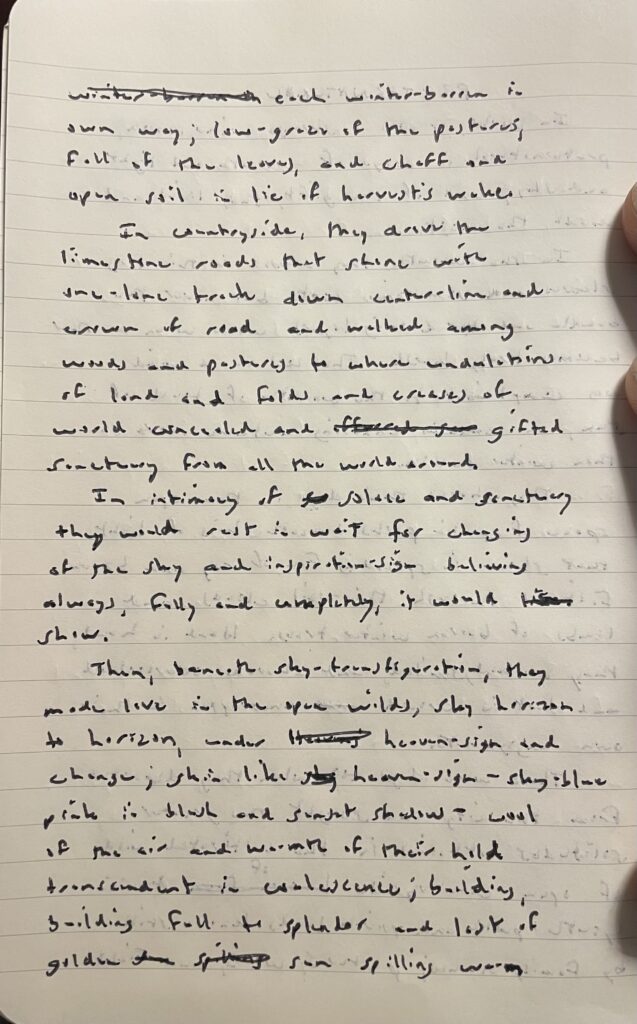 each winter-barren in
own way; low-graze of the pastures,
fall of the leaves, and chaff and
open soil in lie of harvest's wake.
In countryside, they drove the
limestone roads that shine with
one-lane track down center-line and
crown of road and walked among
woods and pastures to where undulations
of land and folds and creases of
world concealed and gifted
sanctuary from all the world around.
In intimacy of solace and sanctuary
they would rest in wait for changing
of the sky and inspiration-sign believing
always, fully and completely, it would
show.
Then, beneath sky-transfiguration, they
made love in the open wilds, sky horizon
to horizon, under heaven-sign and
change; skin like heaven-sign - sky-blue
pink in blush and sunset shadow - cool
of the air and warmth of their hold
transcendent in coalescence; building,
building fall to splendor and last of
golden sun spilling warm